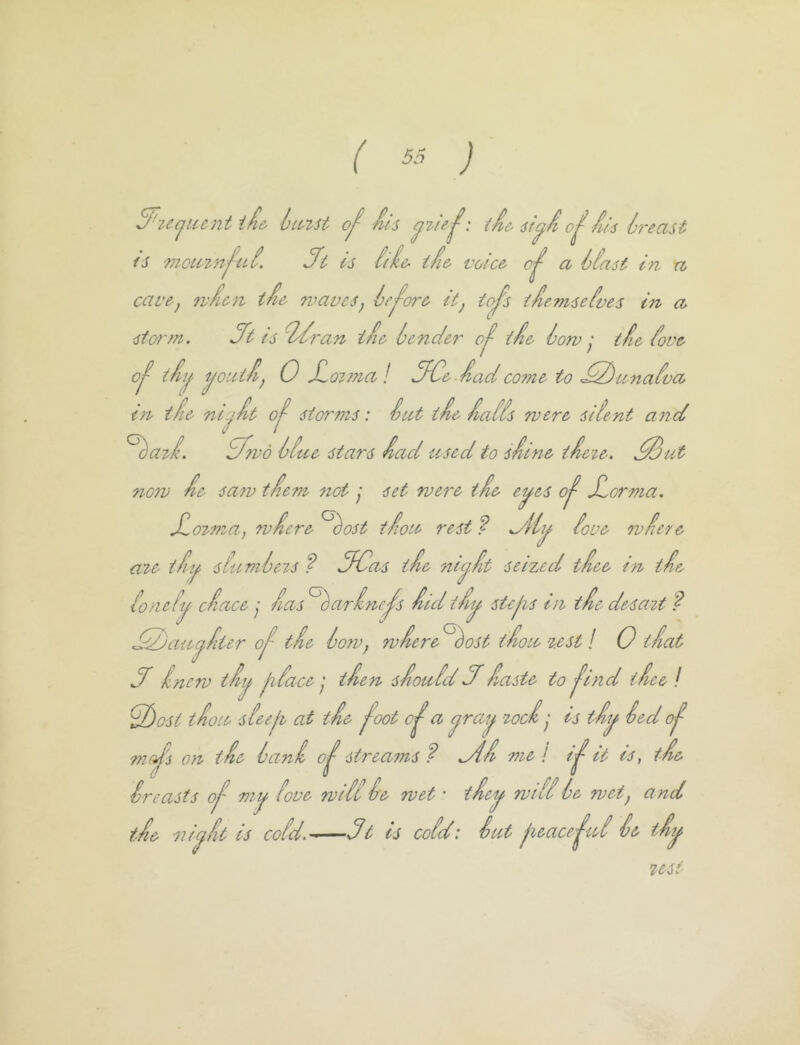 ( 55 )
Frequent the burst of his grief: the sigh of his breast
is mournful. It is like the voice of a blast in a
cave, when the waves, before it, toss themselves in a
storm. It is Uran the bender of the bow; the love
of thy youth, O Lorma! He had come to Dunalva
in the night of storms: but the halls were silent and
dark. Two blue stars had used to shine there. But
now he saw them not; set were the eyes of Lorma.
Lorma, where dost thou rest? My love where
are thy slumbers? Has the night seized thee in the
lonely chace; has darkness hid thy steps in the desart?
Daughter of the bow, where dost thou rest! O that
I knew thy place; then should I haste to find thee!
Dost thou sleep at the foot of a gray rock; is thy bed of
moss on the bank of streams? Ah me! if it is, the
breasts of my love will be wet; they will be wet, and
the night is cold.—It is cold: but peaceful be thy
rest